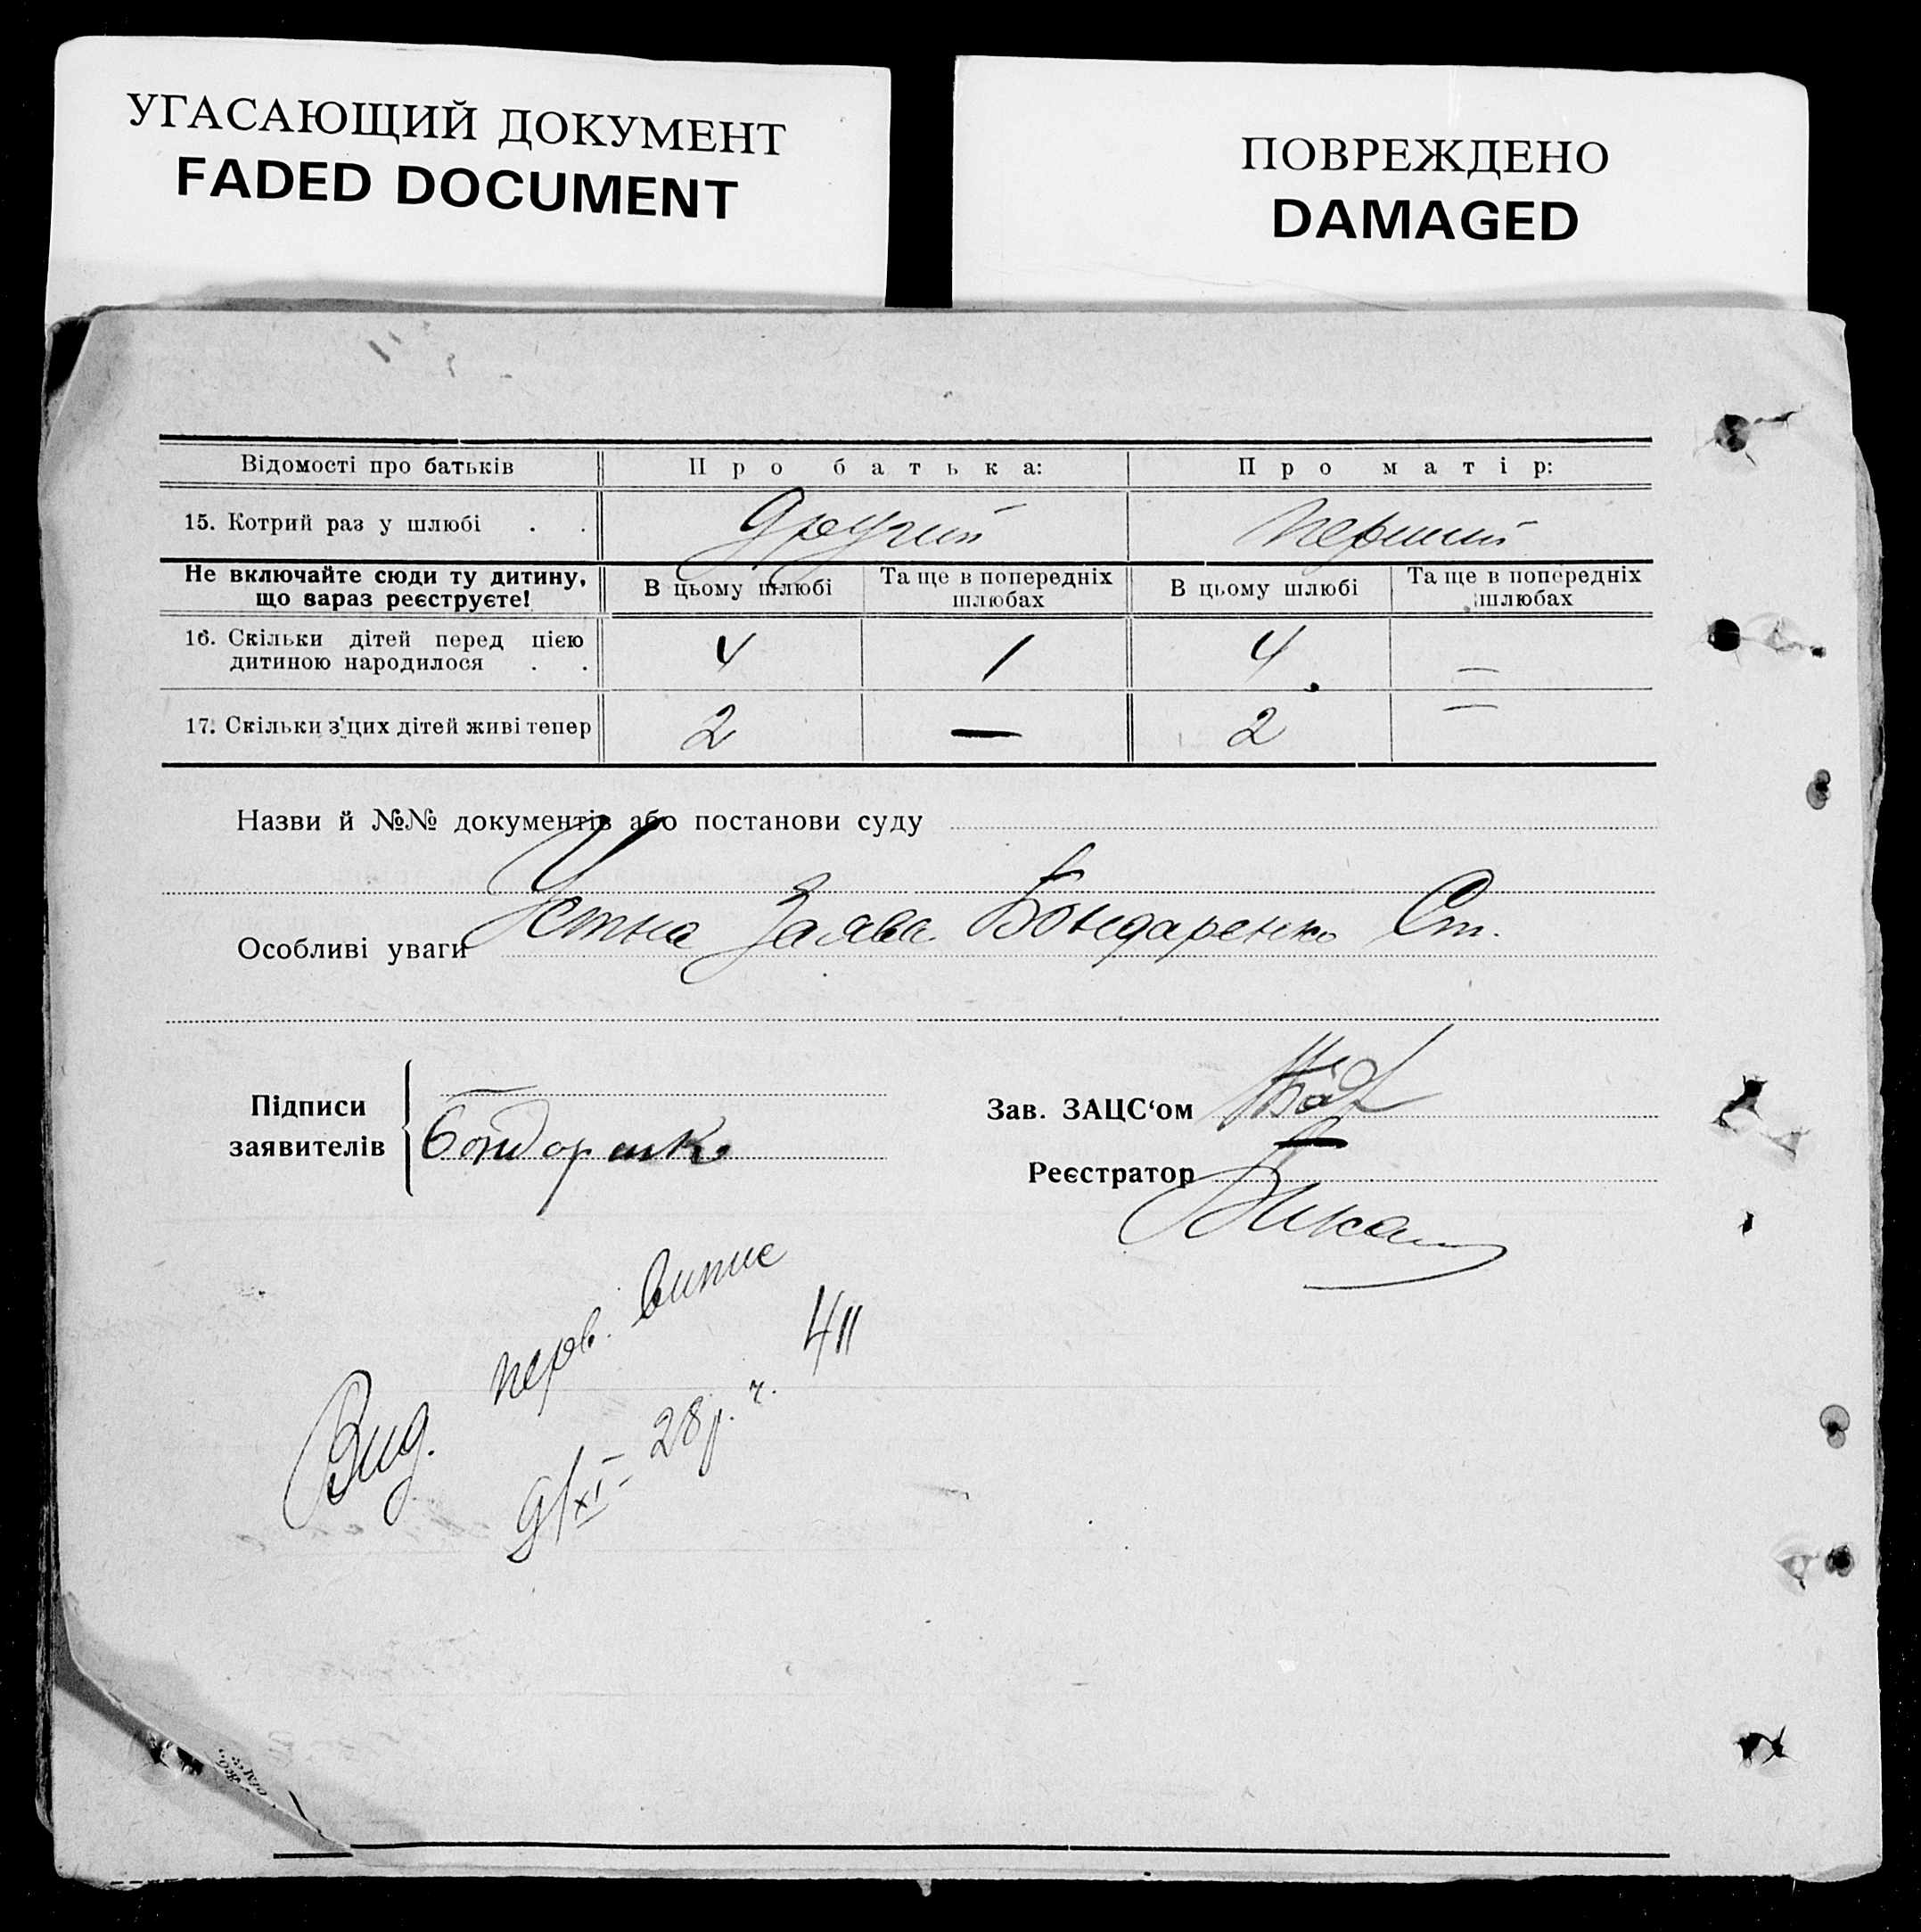 УГАСАЮЩИЙ ДОКУМЕНТ
FADED DOCUMENT
ПОВРЕЖДЕНО
DAMAGED
Відомості про батьків Про батька: Про матір:
15. Котрий раз у шлюбі . . Другий Перший
Не включайте сюди ту дитину, що зараз реєструєте! В цьому шлюбі Та ще в попередніх шлюбах В цьому шлюбі Та ще в попередніх шлюбах
16. Скільки дітей перед цією дитиною народилося . . 4 1 4 =
17. Скільки з цих дітей живі тепер 2 — 2 =
Назви й №№ документів або постанови суду
Особливі уваги Устна Заява Бондаренко Ст.
Підписи заявителів Бондаренко
Зав. ЗАЦС'ом
Реєстратор
Вид. перв. витис
9/XI- 28р. ч. 411